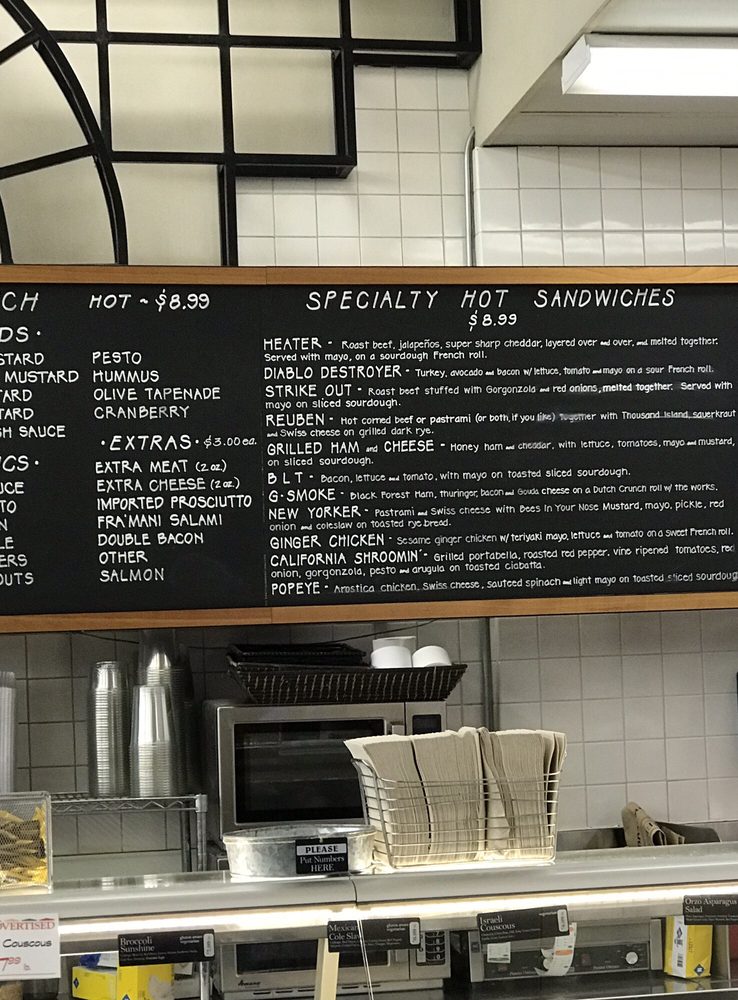 CH HOT ~ $8.99
DS •
STARD PESTO
MUSTARD HUMMUS
TARD OLIVE TAPENADE
TARD CRANBERRY
SH SAUCE
• EXTRAS • $3.00 ea.
ICS •
UCE EXTRA MEAT (2 oz.)
TO EXTRA CHEESE (2 oz.)
N IMPORTED PROSCIUTTO
LE FRA'MANI SALAMI
ERS DOUBLE BACON
OUTS OTHER
SALMON
SPECIALTY HOT SANDWICHES
$8.99
HEATER - Roast beef, jalapeños, super sharp cheddar, layered over and over, and melted together.
Served with mayo, on a sourdough French roll.
DIABLO DESTROYER - Turkey, avocado and bacon w/ lettuce, tomato and mayo on a sour French roll.
STRIKE OUT - Roast beef stuffed with Gorgonzola and red onions, melted together. Served with
mayo on sliced sourdough.
REUBEN - Hot corned beef or pastrami (or both, if you like) together with Thousand Island, sauerkraut
and Swiss cheese on grilled dark rye.
GRILLED HAM and CHEESE - Honey ham and cheddar, with lettuce, tomatoes, mayo and mustard,
on sliced sourdough.
B L T - Bacon, lettuce and tomato, with mayo on toasted sliced sourdough.
G-SMOKE - Black Forest Ham, thuringer, bacon and Gouda cheese on a Dutch Crunch roll w/ the works.
NEW YORKER - Pastrami and Swiss cheese with Bees In Your Nose Mustard, mayo, pickle, red
onion and coleslaw on toasted rye bread.
GINGER CHICKEN - Sesame ginger chicken w/ teriyaki mayo, lettuce and tomato on a sweet French roll.
CALIFORNIA SHROOMIN' - Grilled portabella, roasted red pepper, vine ripened tomatoes, red
onion, gorgonzola, pesto and arugula on toasted ciabatta.
POPEYE - Arostica chicken, Swiss cheese, sauteed spinach and light mayo on toasted sliced sourdoug
PLEASE
Put Numbers
HERE
DVERTISED
Couscous
7.99
Broccoli
Sunshine
Mexican
Cole Slaw
Israeli
Couscous
Orzo Asparagus
Salad